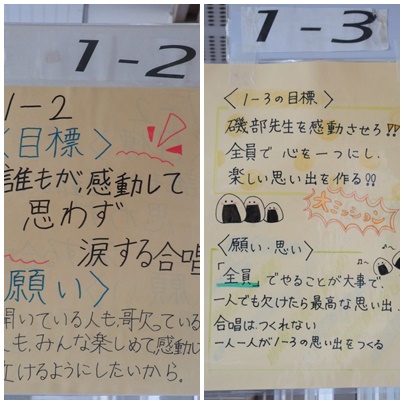 1-2
1-2
〈目標〉
誰もが感動して
思わず
涙する合唱
願い〉
聞いている人も、歌っている
も、みんな楽しめて感動し
泣けるようにしたいから。
1-3
〈1-3の目標〉
磯部先生を感動させろ!!
全員で心を一つにし、
楽しい思い出を作る!!
大ミッション
〈願い・思い〉
「全員」でやることが大事で、
一人でも欠けたら最高な思い出、
合唱は、つくれない
一人一人が1-3の思い出をつくる